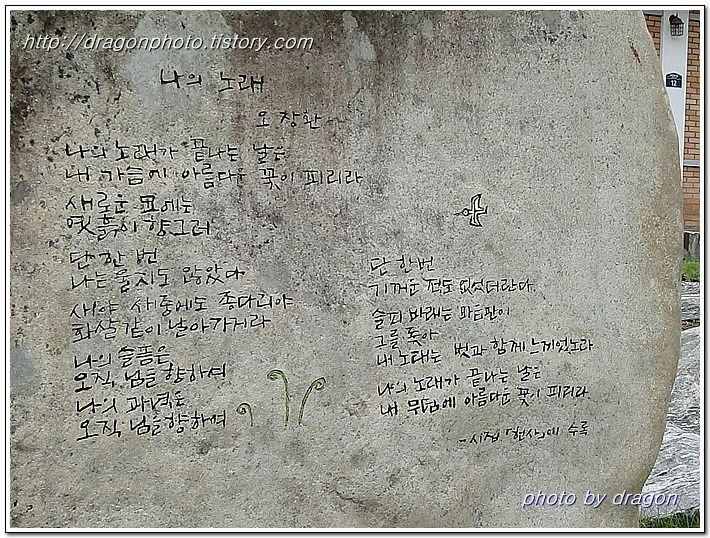 http://dragonphoto.tistory.com
나의 노래
오장환
나의 노래가 끝나는 날은
내 가슴에 아름다운 꽃이 피리라
새로운 묘에는
옛 흙이 향그러
단 한 번
나는 울지도 않았다
새야 새 중에도 종다리야
화살같이 날아가거라
나의 슬픔은
오직 님을 향하여
나의 과녁은
오직 님을 향하여
단 한번
기꺼운 적도 없었더란다.
슬피 바래는 마음만이
그를 좇아
내 노래는 벗과 함께 느끼었노라
나의 노래가 끝나는 날은
내 무덤에 아름다운 꽃이 피리라.
-시집 「헌사」에 수록
12
photo by dragon